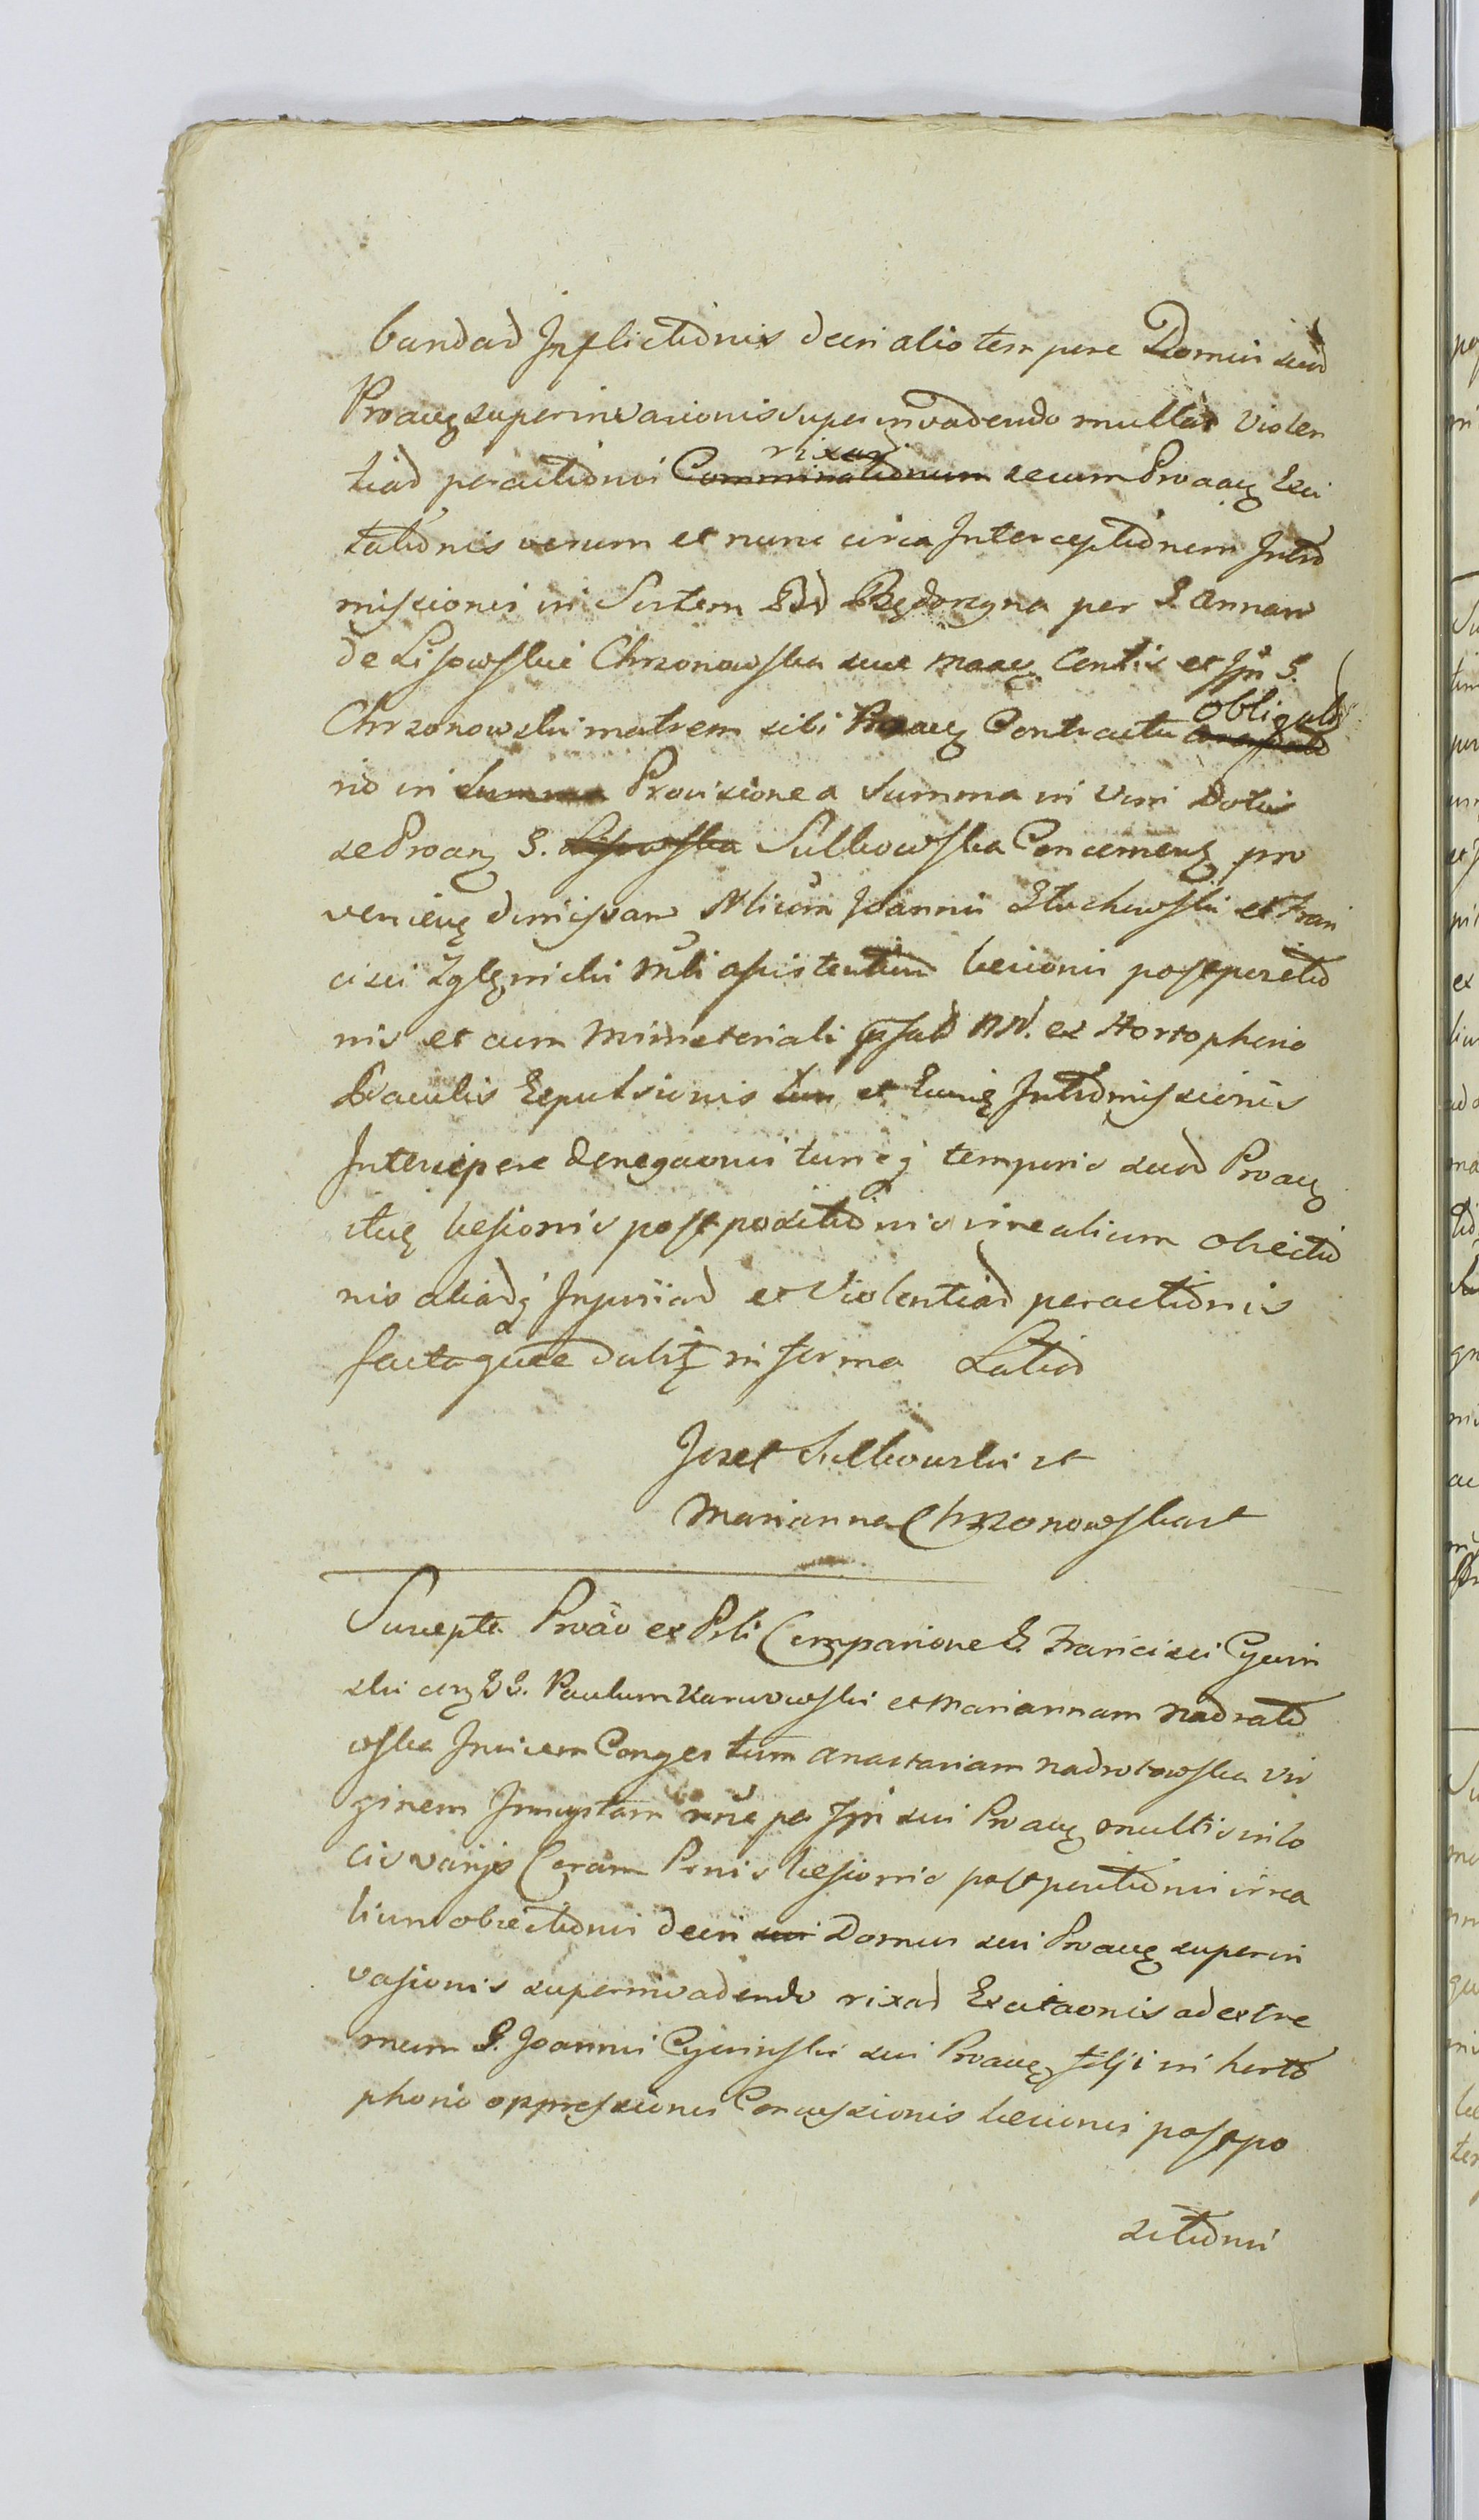 bandas Inflictionis dein alio tempore Domin suas
Proaug superinvasionis superinvadendo multas violen
tias peractionis Comminationum rixas secum Proaug Exci
tationis verum et nunc circa Interceptionem Intro
missionis in Sortem Bd Będorzyna per G. Annam
de Lisowskie Chrzonowska sua maag Contis et Jpi G.
Chrzonowski matrem sibi Proaug Contractu obligato
rio in Summa Provisione a Summa in vim Dotis
seProang G. Lisowska Sulkowska Concerneng pro
venieng dimissam Nlium Joannis Stuchowski et Fran
cisci Zglenicki Mli assistentium lesionis postpositio
nis et cum Ministeriali NN. ex Hortopherio
Baculis Expulsionis tum et Intromissionis
Intercipere denegaonis tunc temporis suas Proaug
itug lesionis postpositionis virealium obiectio
nis aliasq Injurias et Violentias peractionis
facta in forma Latiod
Jozef Sulkowski st
Marianna Chrzonowska st
Suscepta Proāo ex Prli Comparione G. Francisci Cywin
ski cong GG. Paulum Karwowski et Mariannam Nadrato
wska Invicem Conges tum Anastasiam Nadrotowska vir
ginem Innuptam rne pa Jpi sui Proaug multis in lo
cis varijs Coram Prnis lesionis postpositionis virea
lium obiectionis dein sui Domus sui Proaug superin
vasionis superinvadendo rixas Excitaonis ad extre
mum G. Joannis Cywinski sui Proaug filji in horto
phorio oppressionis Concussionis lesionis postpo
sitionis